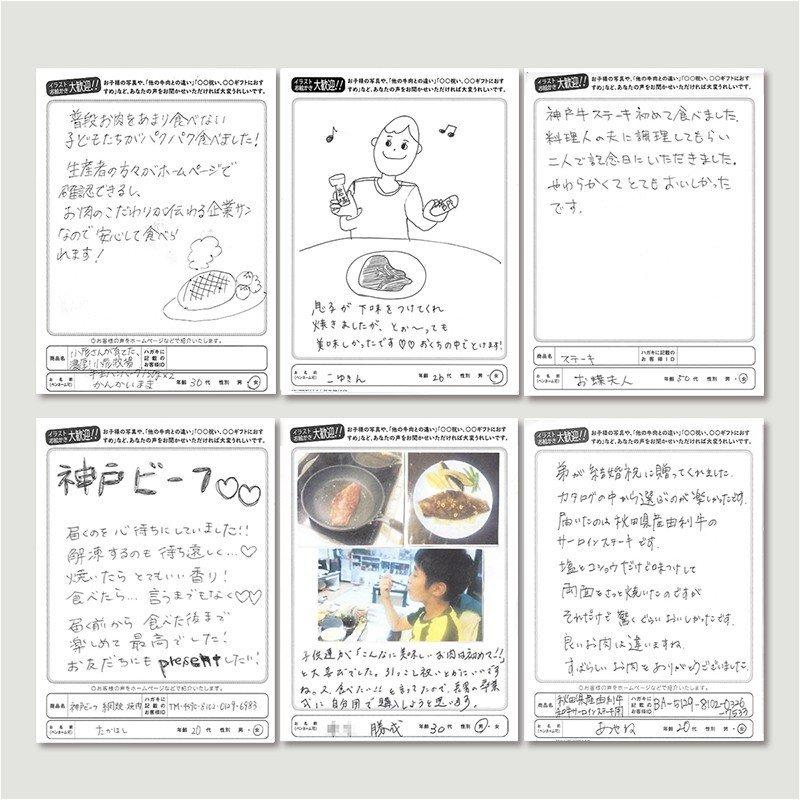 イラスト お絵かき 大歓迎!! お子様の写真や、「他の牛肉との違い」「〇〇祝い、〇〇ギフトにおすすめ」など、あなたの声をお聞かせいただければ大変うれしいです。
普段お肉をあまり食べない
子どもたちがパクパク食べました!
生産者の方々がホームページで
確認できるし、
お肉のこだわりが伝わる企業サン
なので安心して食べら
れます!
◎お客様の声をホームページなどで紹介いたします。
商品名
小形さんが育てた、
ハガキに記載のお客様ID
お名前(ペンネーム可) かんかいまき 年齢 30代 性別 男・女
イラスト お絵かき 大歓迎!! お子様の写真や、「他の牛肉との違い」「〇〇祝い、〇〇ギフトにおすすめ」など、あなたの声をお聞かせいただければ大変うれしいです。
息子が下味をつけてくれ
焼きましたが、とぉ〜っても
美味しかったです♡♡おくちの中でとけます!
お名前(ペンネーム可) こゆきん 年齢 26代 性別 男・女
イラスト お絵かき 大歓迎!! お子様の写真や、「他の牛肉との違い」「〇〇祝い、〇〇ギフトにおすすめ」など、あなたの声をお聞かせいただければ大変うれしいです。
神戸牛ステーキ初めて食べました。
料理人の夫に調理してもらい
二人で記念日にいただきました。
やわらかくてとてもおいしかった
です。
商品名 ステーキ ハガキに記載のお客様ID
お名前(ペンネーム可) お蝶夫人 年齢 50代 性別 男・女
イラスト お絵かき 大歓迎!! お子様の写真や、「他の牛肉との違い」「〇〇祝い、〇〇ギフトにおすすめ」など、あなたの声をお聞かせいただければ大変うれしいです。
神戸ビーフ♡♡
届くのを心待ちにしていました!!
解凍するのも待ち遠しく…♡
焼いたらとてもいい香り!
食べたら…言うまでもなく♡♡
届く前から食べた後まで
楽しめて最高でした!
お友だちにもpresentしたい!
◎お客様の声をホームページなどで紹介いたします。
商品名 神戸ビーフ 網焼 焼肉 ハガキに記載のお客様ID TM-4590-8102-0129-6983
お名前(ペンネーム可) たかはし 年齢 20代 性別 男・女
イラスト お絵かき 大歓迎!! お子様の写真や、「他の牛肉との違い」「〇〇祝い、〇〇ギフトにおすすめ」など、あなたの声をお聞かせいただければ大変うれしいです。
子供達が「こんなに美味しいお肉は初めて!!」
と大喜びでした。引っこし祝いとかにいいです
ね。又、食べたい!!と言ってたので、長男の卒業
式に自分用で購入しようと思います。
お名前(ペンネーム可) 勝成 年齢 30代 性別 男・女
イラスト お絵かき 大歓迎!! お子様の写真や、「他の牛肉との違い」「〇〇祝い、〇〇ギフトにおすすめ」など、あなたの声をお聞かせいただければ大変うれしいです。
弟が結婚祝に贈ってくれました。
カタログの中から選ぶのが楽しかったです。
届いたのは秋田県産由利牛の
サーロインステーキです。
塩とコショウだけで味つけして
両面をさっと焼いたのですが
それだけで驚くぐらいおいしかったです。
良いお肉は違いますね。
すばらしいお肉をありがとうございました。
◎お客様の声をホームページなどで紹介いたします。
商品名 秋田県産由利牛 ハガキに記載のお客様ID BA-5129-8102-0326
お名前(ペンネーム可) あやね 年齢 20代 性別 男・女